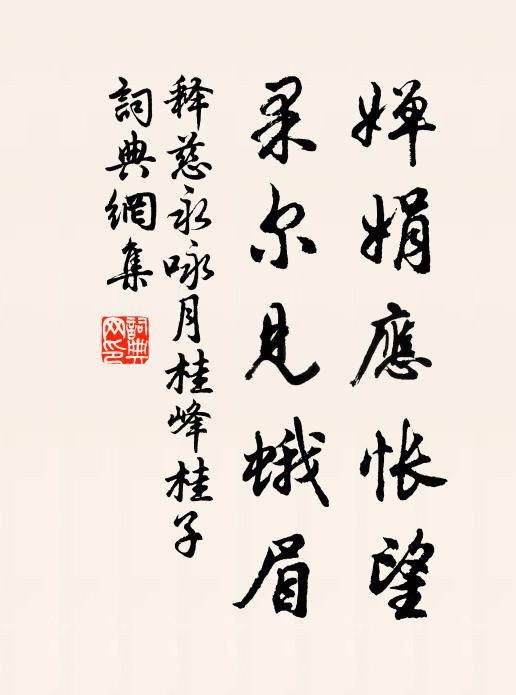 婵娟應怅望
果尔見蛾眉
释慈永咏月桂峰桂子
詞典網集
詞典網印